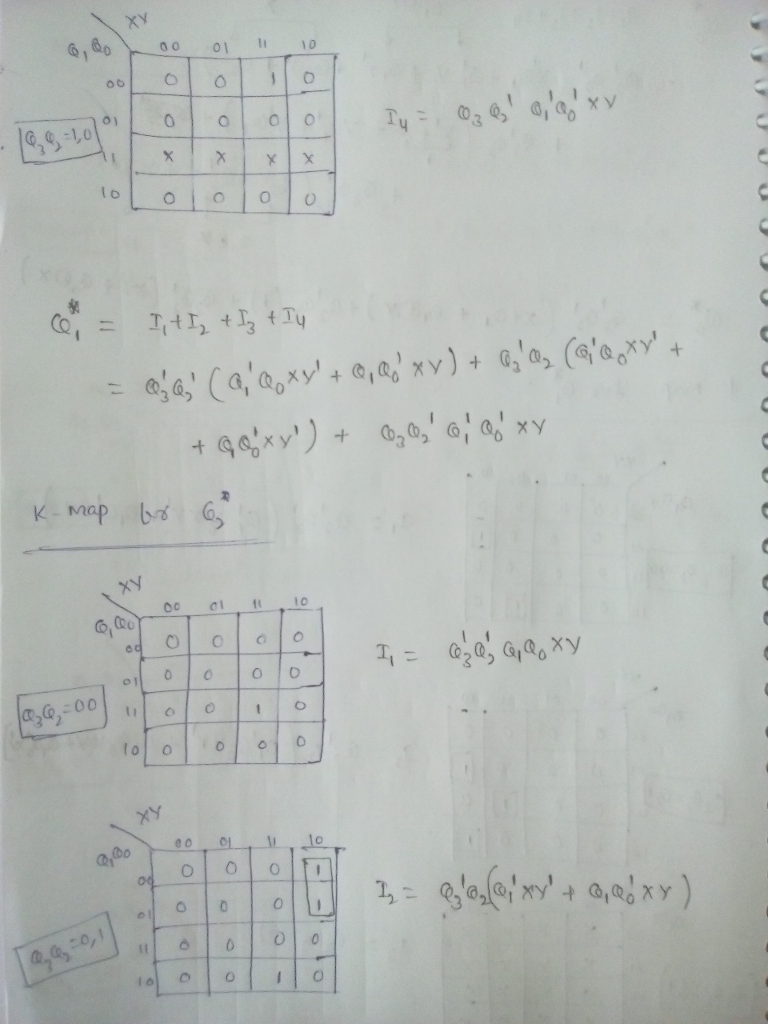 XY
Q₁Q₀ 00 01 11 10
00 0 0 1 0
01 0 0 0 0
Q₃Q₂=1,0
11 x x x x
10 0 0 0 0
I₄ = Q₃Q₂' Q₁'Q₀' XY
Q₁* = I₁+I₂+I₃+I₄
= Q₃'Q₂' (Q₁'Q₀XY' + Q₁Q₀'XY) + Q₃'Q₂ (Q₁'Q₀XY' +
+ Q₁Q₀'XY') + Q₃Q₂'Q₁'Q₀' XY
K-map for Q₂*
XY
Q₁Q₀ 00 01 11 10
00 0 0 0 0
01 0 0 0 0
Q₃Q₂=00
11 0 0 1 0
10 0 0 0 0
I₁ = Q₃'Q₂' Q₁Q₀XY
XY
Q₁Q₀ 00 01 11 10
00 0 0 0 1
01 0 0 0 1
Q₃Q₂=0,1
11 0 0 0 0
10 0 0 1 0
I₂ = Q₃'Q₂(Q₁'XY' + Q₁Q₀'XY)